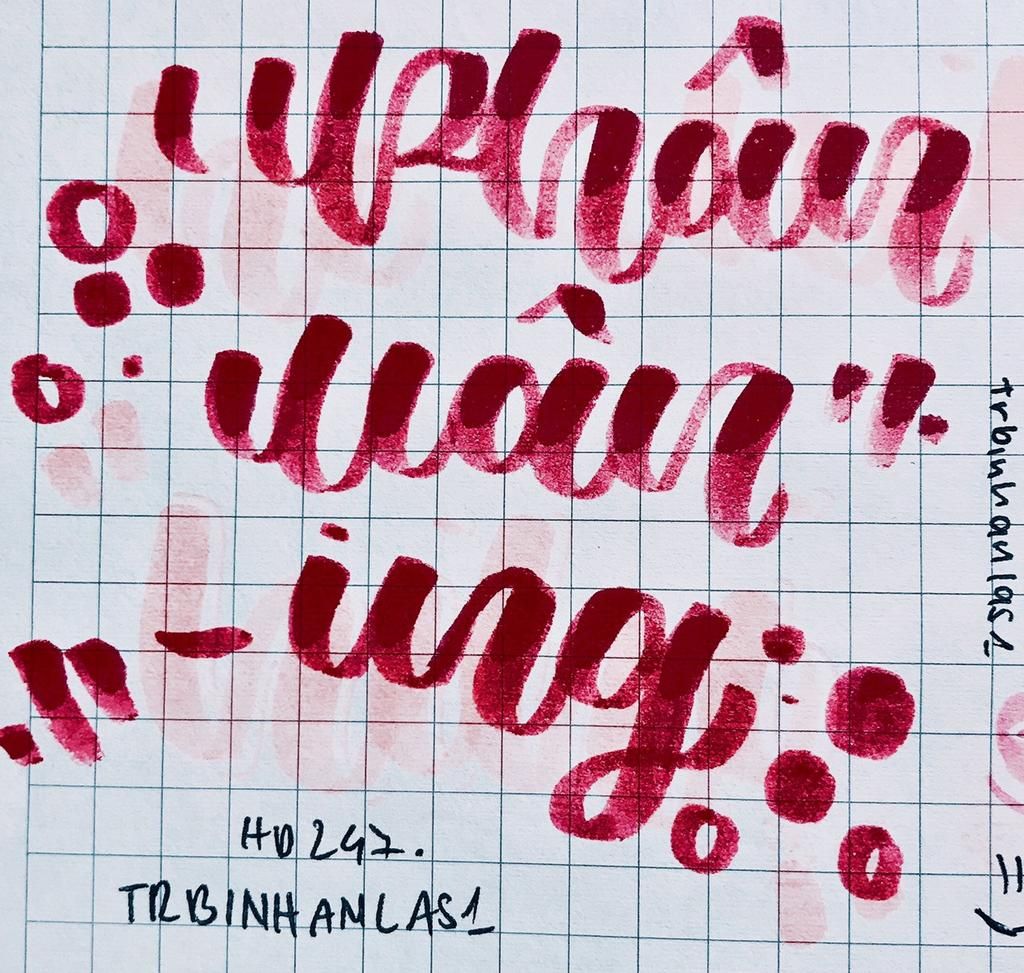 "Phân
Vân"
-ing
HD247.
TRBINHANLAS1
trbinhanlas1 =)